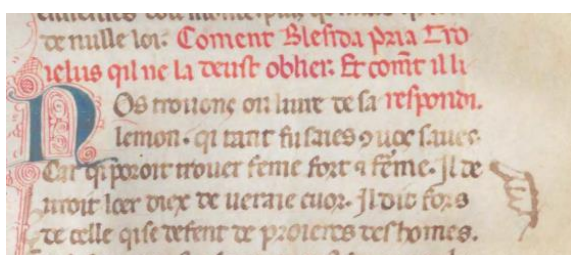 de nulle loi. Coment Blesida pria Tro
ielus qil ne la deust oblier. Et comt il li
respondi.
Nos trouons ou liure de sa
lemon. qi tant fu saies
Car qi poroit trouer feme fort a feme. Il de
uroit loer diex de ueraie cuor. Il dit fors
de celle qi se defent de proieres des homes.